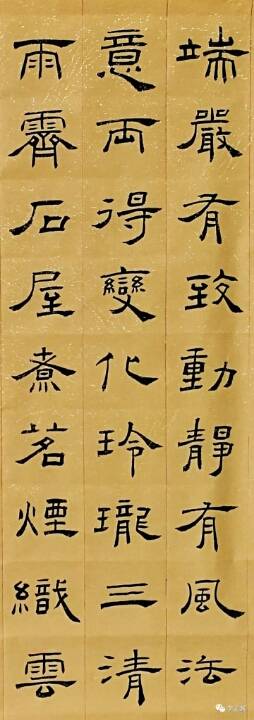 端嚴有致動靜有風法
意两得變化玲瓏三清
雨霽石屋煮茗煙織雲